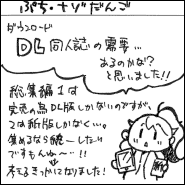 ぷち・ナゾだんご
ダウンロード
DL同人誌の需要…
あるのかな?
と思いました!!
総集編1は
完売の為DL版しかないのですが、
2は紙版しかなく…。
集めるなら統一したい
ですもんね…!!
作るきっかけになりました!